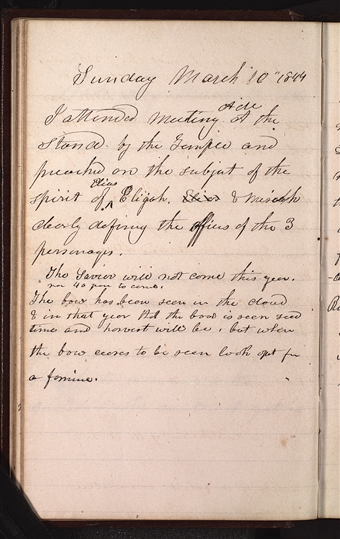 Sunday March 10th 1844
I attended meeting at the
Stand by the Temple and
preached on the subject of the
spirit of Elias Elijah, Elias & Messiah
clearly defining the offices of the 3
personages.
The Savior will not come this year.
nor 40 years to come.
The bow has been seen in the cloud
& in that year that the bow is seen seed
time and harvest will be, but when
the bow ceases to be seen look out for
a famine.